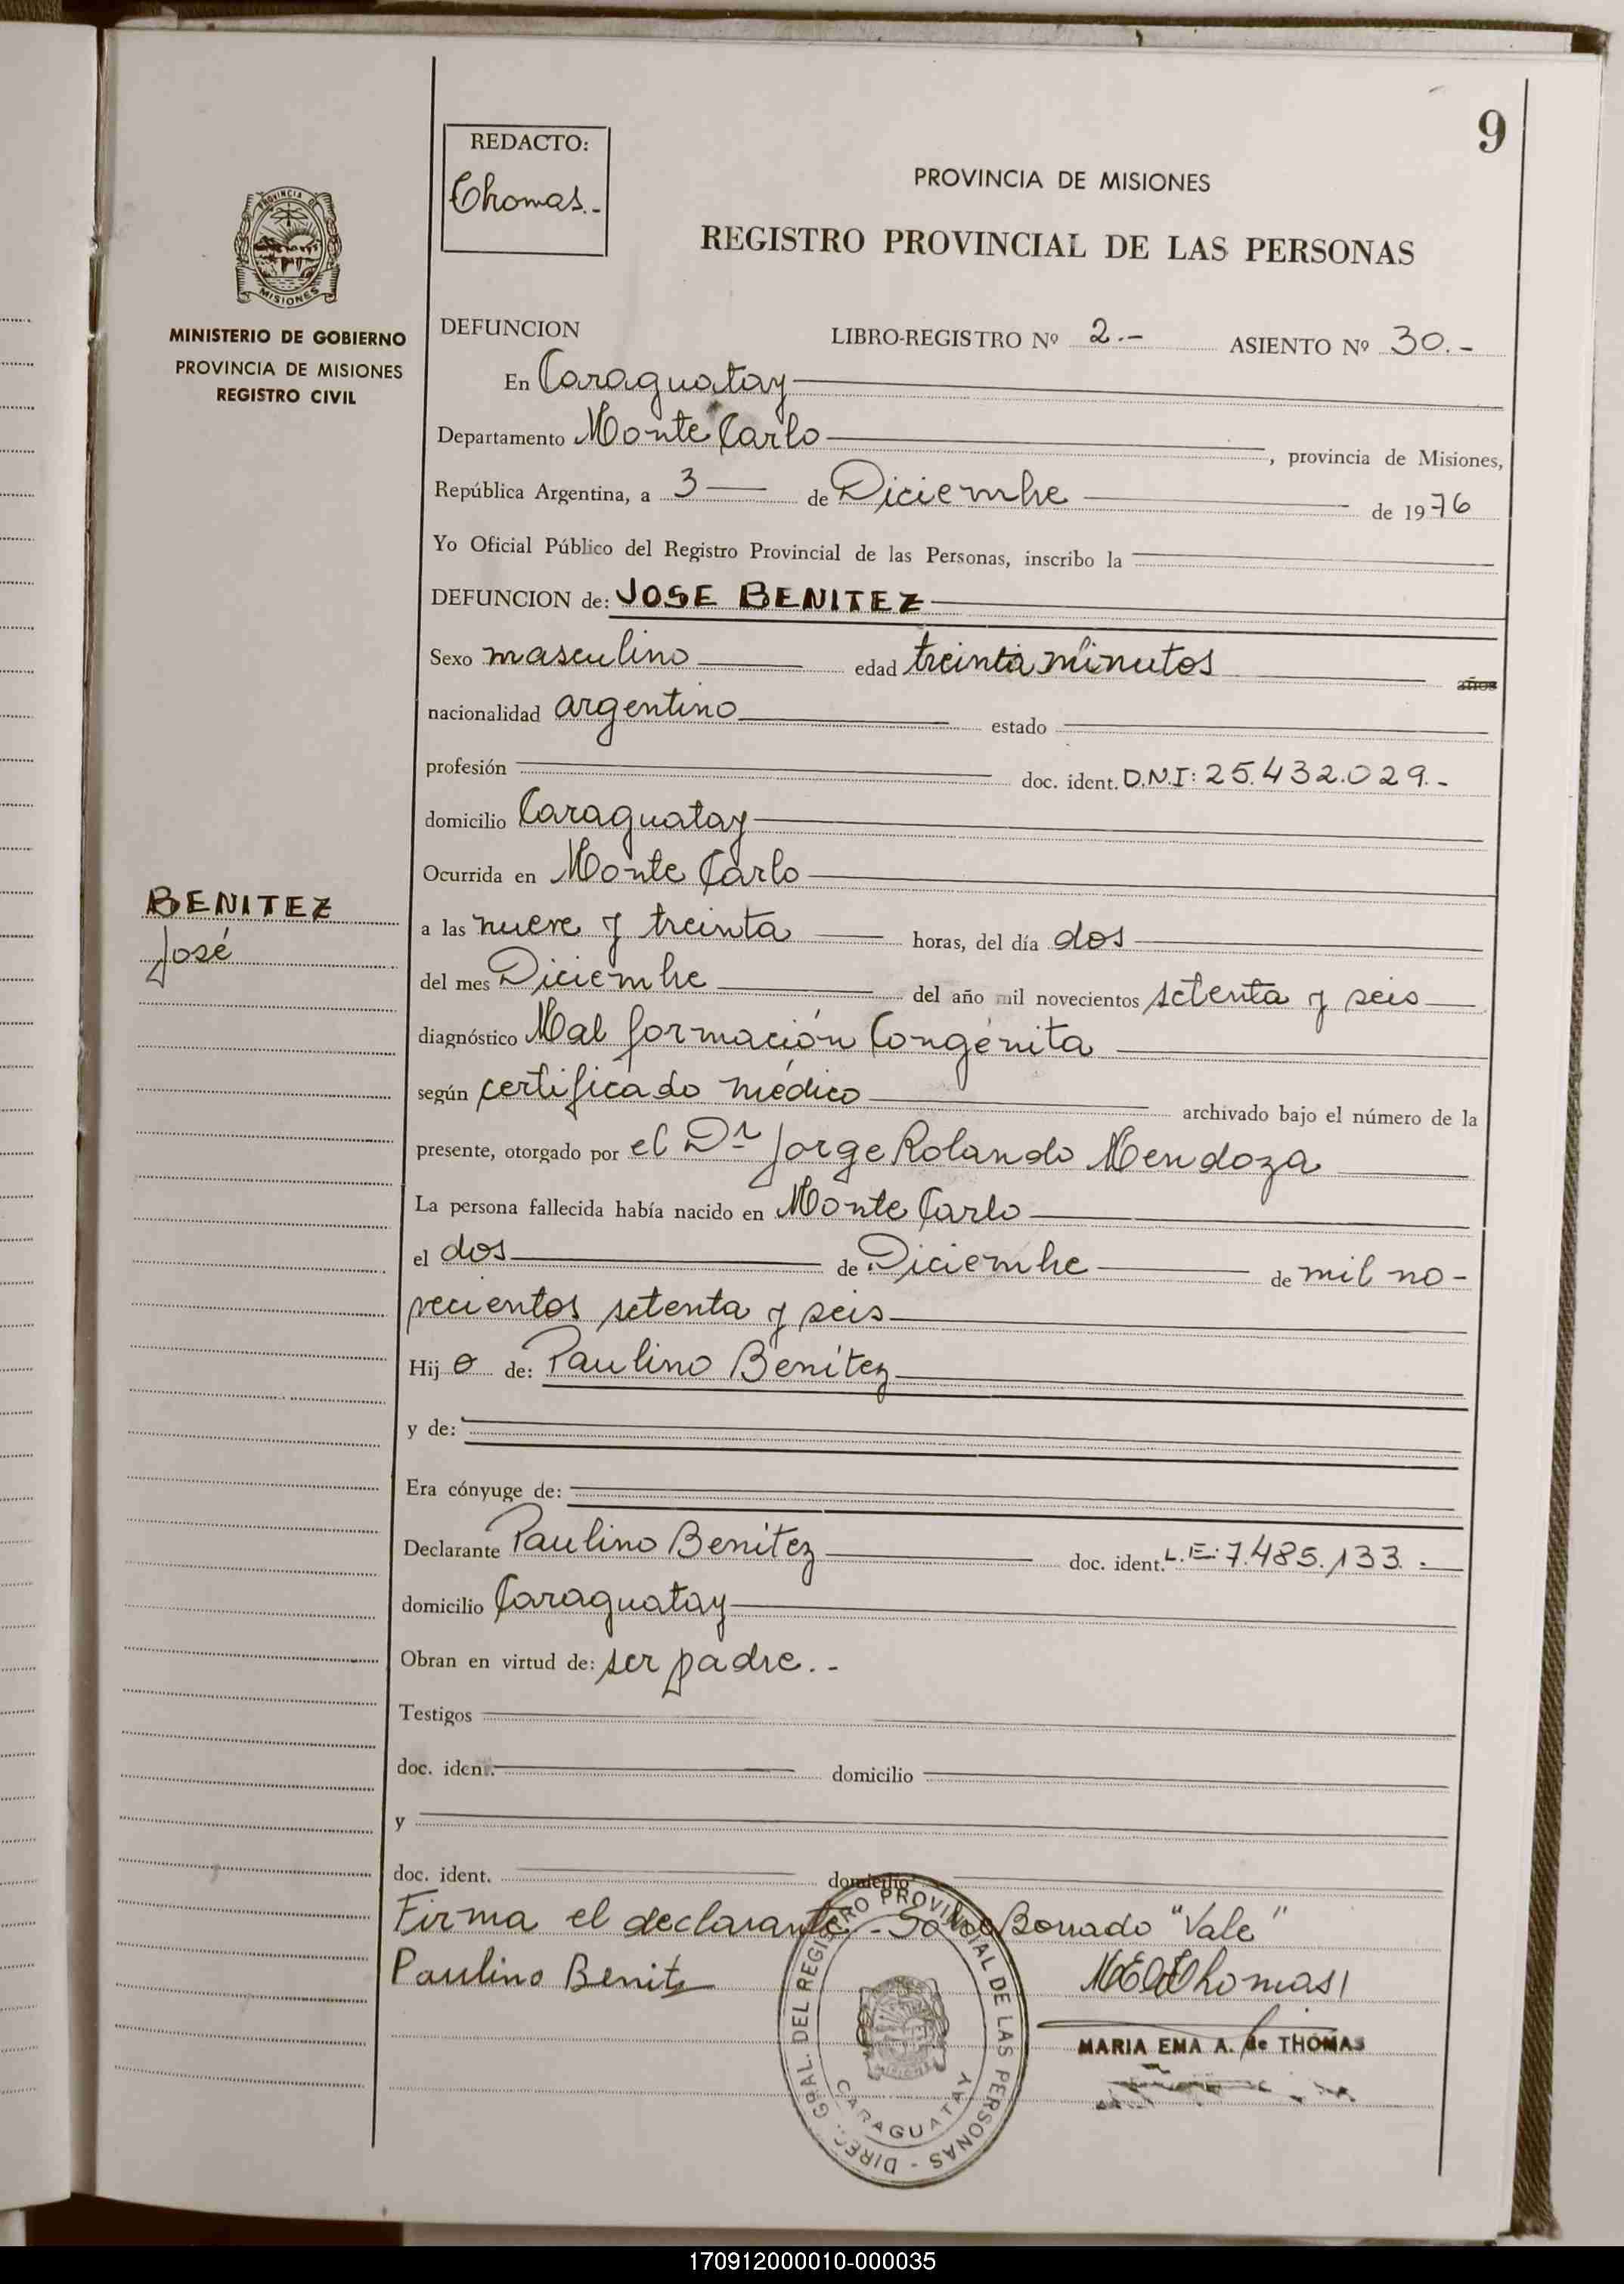 9
REDACTO:
Thomas.-
PROVINCIA DE MISIONES
REGISTRO PROVINCIAL DE LAS PERSONAS
PROVINCIA DE
MISIONES
MINISTERIO DE GOBIERNO
PROVINCIA DE MISIONES
REGISTRO CIVIL
DEFUNCION LIBRO-REGISTRO Nº 2.- ASIENTO Nº 30.-
En Caraguatay
Departamento Monte Carlo, provincia de Misiones,
República Argentina, a 3 de Diciembre de 1976
Yo Oficial Público del Registro Provincial de las Personas, inscribo la
DEFUNCION de: JOSE BENITEZ
Sexo masculino edad treinta minutos años
nacionalidad argentino estado
profesión doc. ident. D.N.I: 25.432.029.-
domicilio Caraguatay
Ocurrida en Monte Carlo
BENITEZ
José
a las nueve y treinta horas, del día dos
del mes Diciembre del año mil novecientos setenta y seis
diagnóstico Mal formación Congénita
según certificado médico archivado bajo el número de la
presente, otorgado por el Dr Jorge Rolando Mendoza
La persona fallecida había nacido en Monte Carlo
el dos de Diciembre de mil no-
vecientos setenta y seis
Hijo de: Paulino Benítez
y de:
Era cónyuge de:
Declarante Paulino Benítez doc. ident. L.E: 7.485.133.-
domicilio Caraguatay
Obran en virtud de: ser padre.-
Testigos
doc. ident. domicilio
y
doc. ident. domicilio
Firma el declarante.- Sobre Borrado "Vale"
Paulino Benitz
MEAThomas
MARIA EMA A. de THOMAS
DIREC. GRAL. DEL REGISTRO PROVINCIAL DE LAS PERSONAS -
CARAGUATAY
170912000010-000035